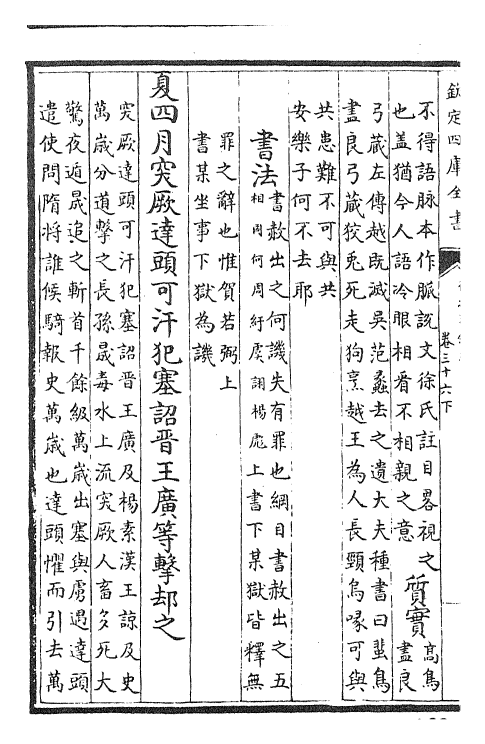 欽定四庫全書
卷三十六下
不得語脉本作脈説文徐氏註目畧視之
也盖猶今人語冷眼相看不相親之意
質實
高鳥
盡良
弓藏左傳越既滅吳范蠡去之遺大夫種書曰蜚鳥
盡良弓藏狡兎死走狗烹越王為人長頸烏喙可與
共患難不可與共
安樂子何不去耶
書法
書赦出之何譏失有罪也綱目書赦出之五
相周何周紆虞詡楊彪上書下某獄皆釋無
罪之辭也惟賀若弼上
書某坐事下獄為譏
夏四月突厥達頭可汗犯塞詔晋王廣等擊却之
突厥達頭可汗犯塞詔晋王廣及楊素漢王諒及史
萬歳分道擊之長孫晟毒水上流突厥人畜多死大
驚夜遁晟追之斬首千餘級萬歳出塞與虜遇達頭
遣使問隋將誰候騎報史萬歳也達頭懼而引去萬